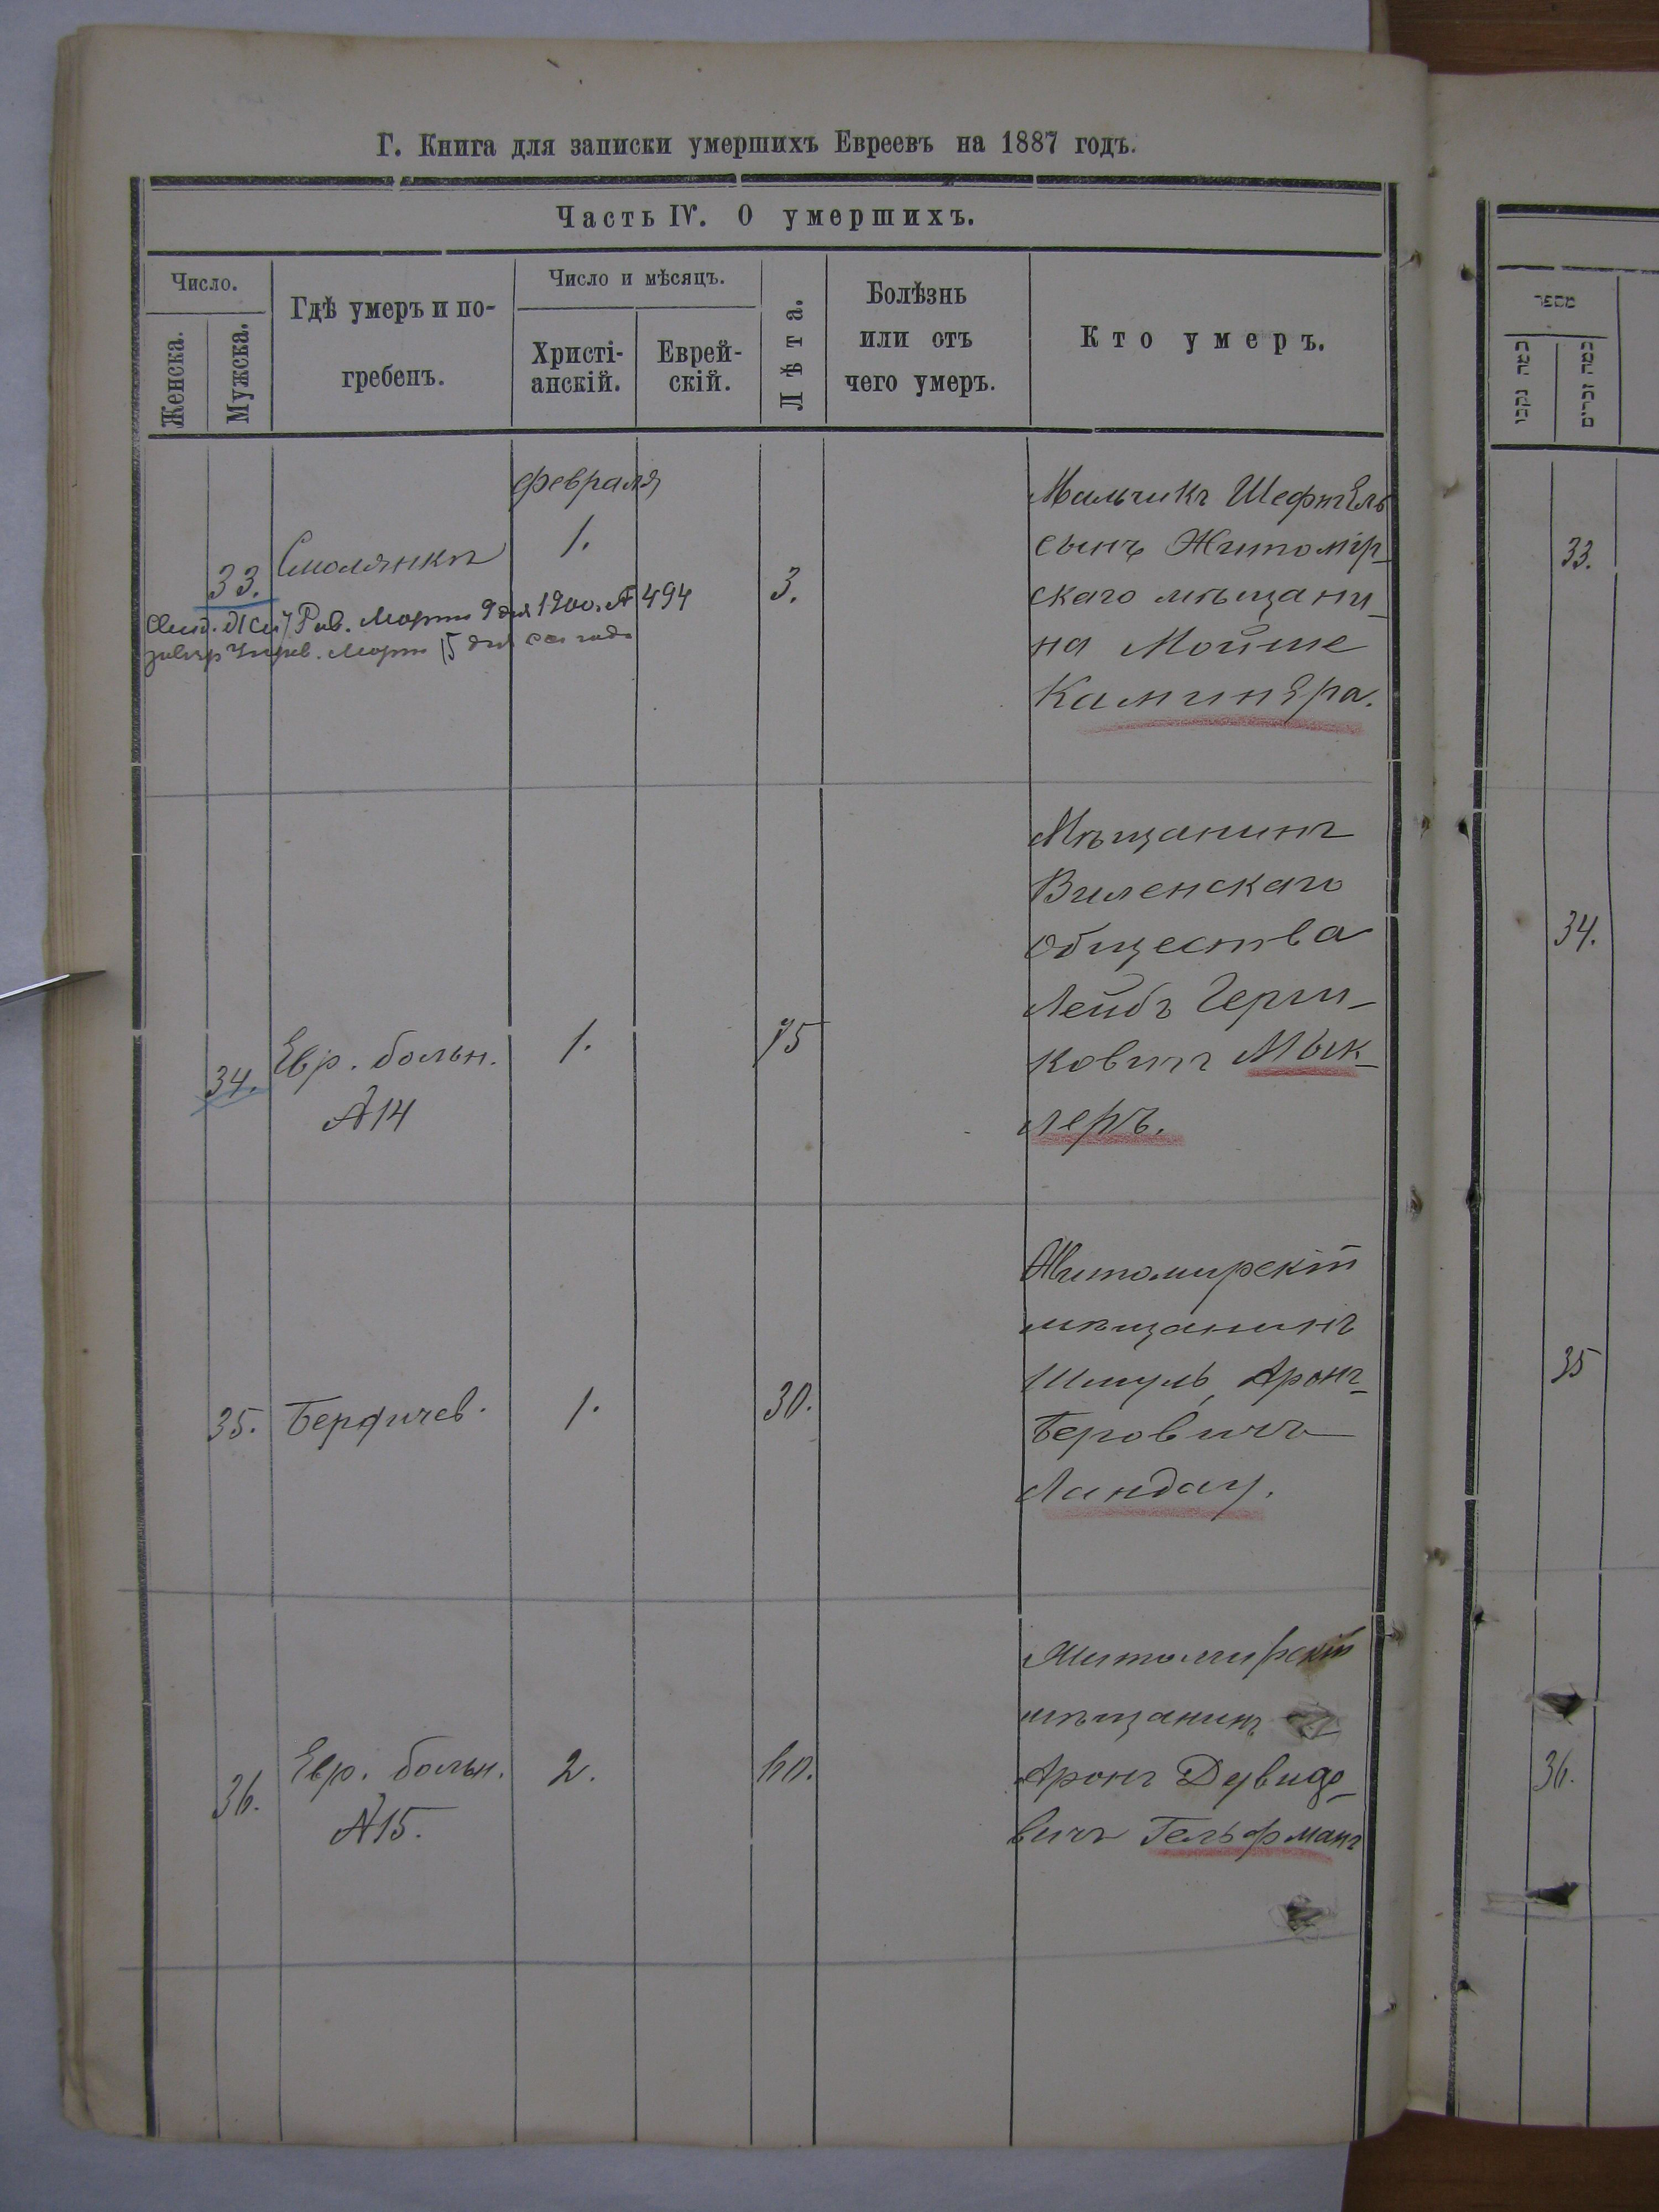 Г. Книга для записки умершихъ Евреевъ на 1887 годъ.
Часть IV. О умершихъ.
Число.
Женска.
Мужска.
Гдѣ умеръ и по-
гребенъ.
Число и мѣсяцъ.
Христі-
анскій.
Еврей-
скій.
Лѣта.
Болѣзнь
или отъ
чего умеръ.
Кто умеръ.
מספר
כמה נקבו
כמה זכרים
февраля
33.
Смолянкѣ
1.
3.
Мальчикъ Шефтель
сынъ Житомір-
скаго мѣщани-
на Мойше
Каминера.
33.
Рав. Марта 9 дня 1900. № 494
Марта 15 дня
34.
Евр. больн.
№ 14
1.
75
Мѣщанинъ
Виленскаго
Общества
Лейбъ
ковичъ Мык-
леръ.
34.
35.
Бердичев.
1.
30.
Житомирскій
мѣщанинъ
Шмуль Аронъ-
Беровичъ
Ландау.
35
36.
Евр. больн.
№ 15.
2.
60.
Житомирскій
мѣщанинъ
Аронъ Дувидо-
вичъ Гельфманъ
36.